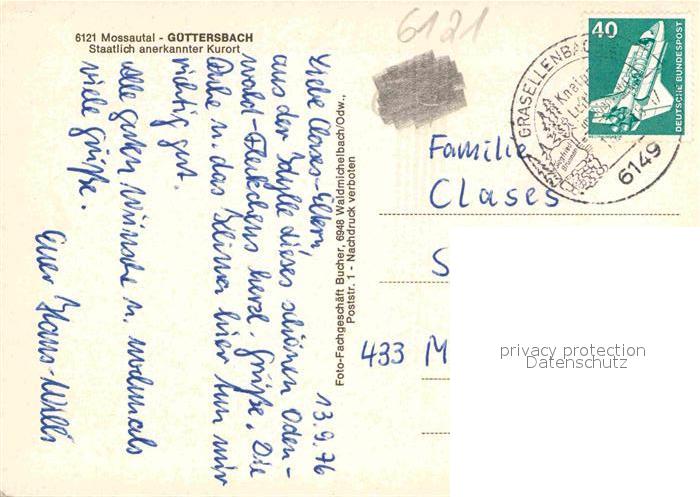 6121 Mossautal - GÜTTERSBACH
Staatlich anerkannter Kurort
6121
40
DEUTSCHE BUNDESPOST
GRASELLENBACH
6149
13.9.76
Liebe Clases-Eltern,
aus der Idylle dieses schönen Oden-
wald-Fleckchens herzl. Grüße. Die
Ruhe u. das Klima hier tun mir
richtig gut.
Alle guten Wünsche u. nochmals
viele Grüße.
Euer Hans-Willi
Foto-Fachgeschäft Bucher, 6948 Waldmichelbach/Odw.,
Poststr. 1 - Nachdruck verboten
Familie
Clases
S
433 M
privacy protection
Datenschutz